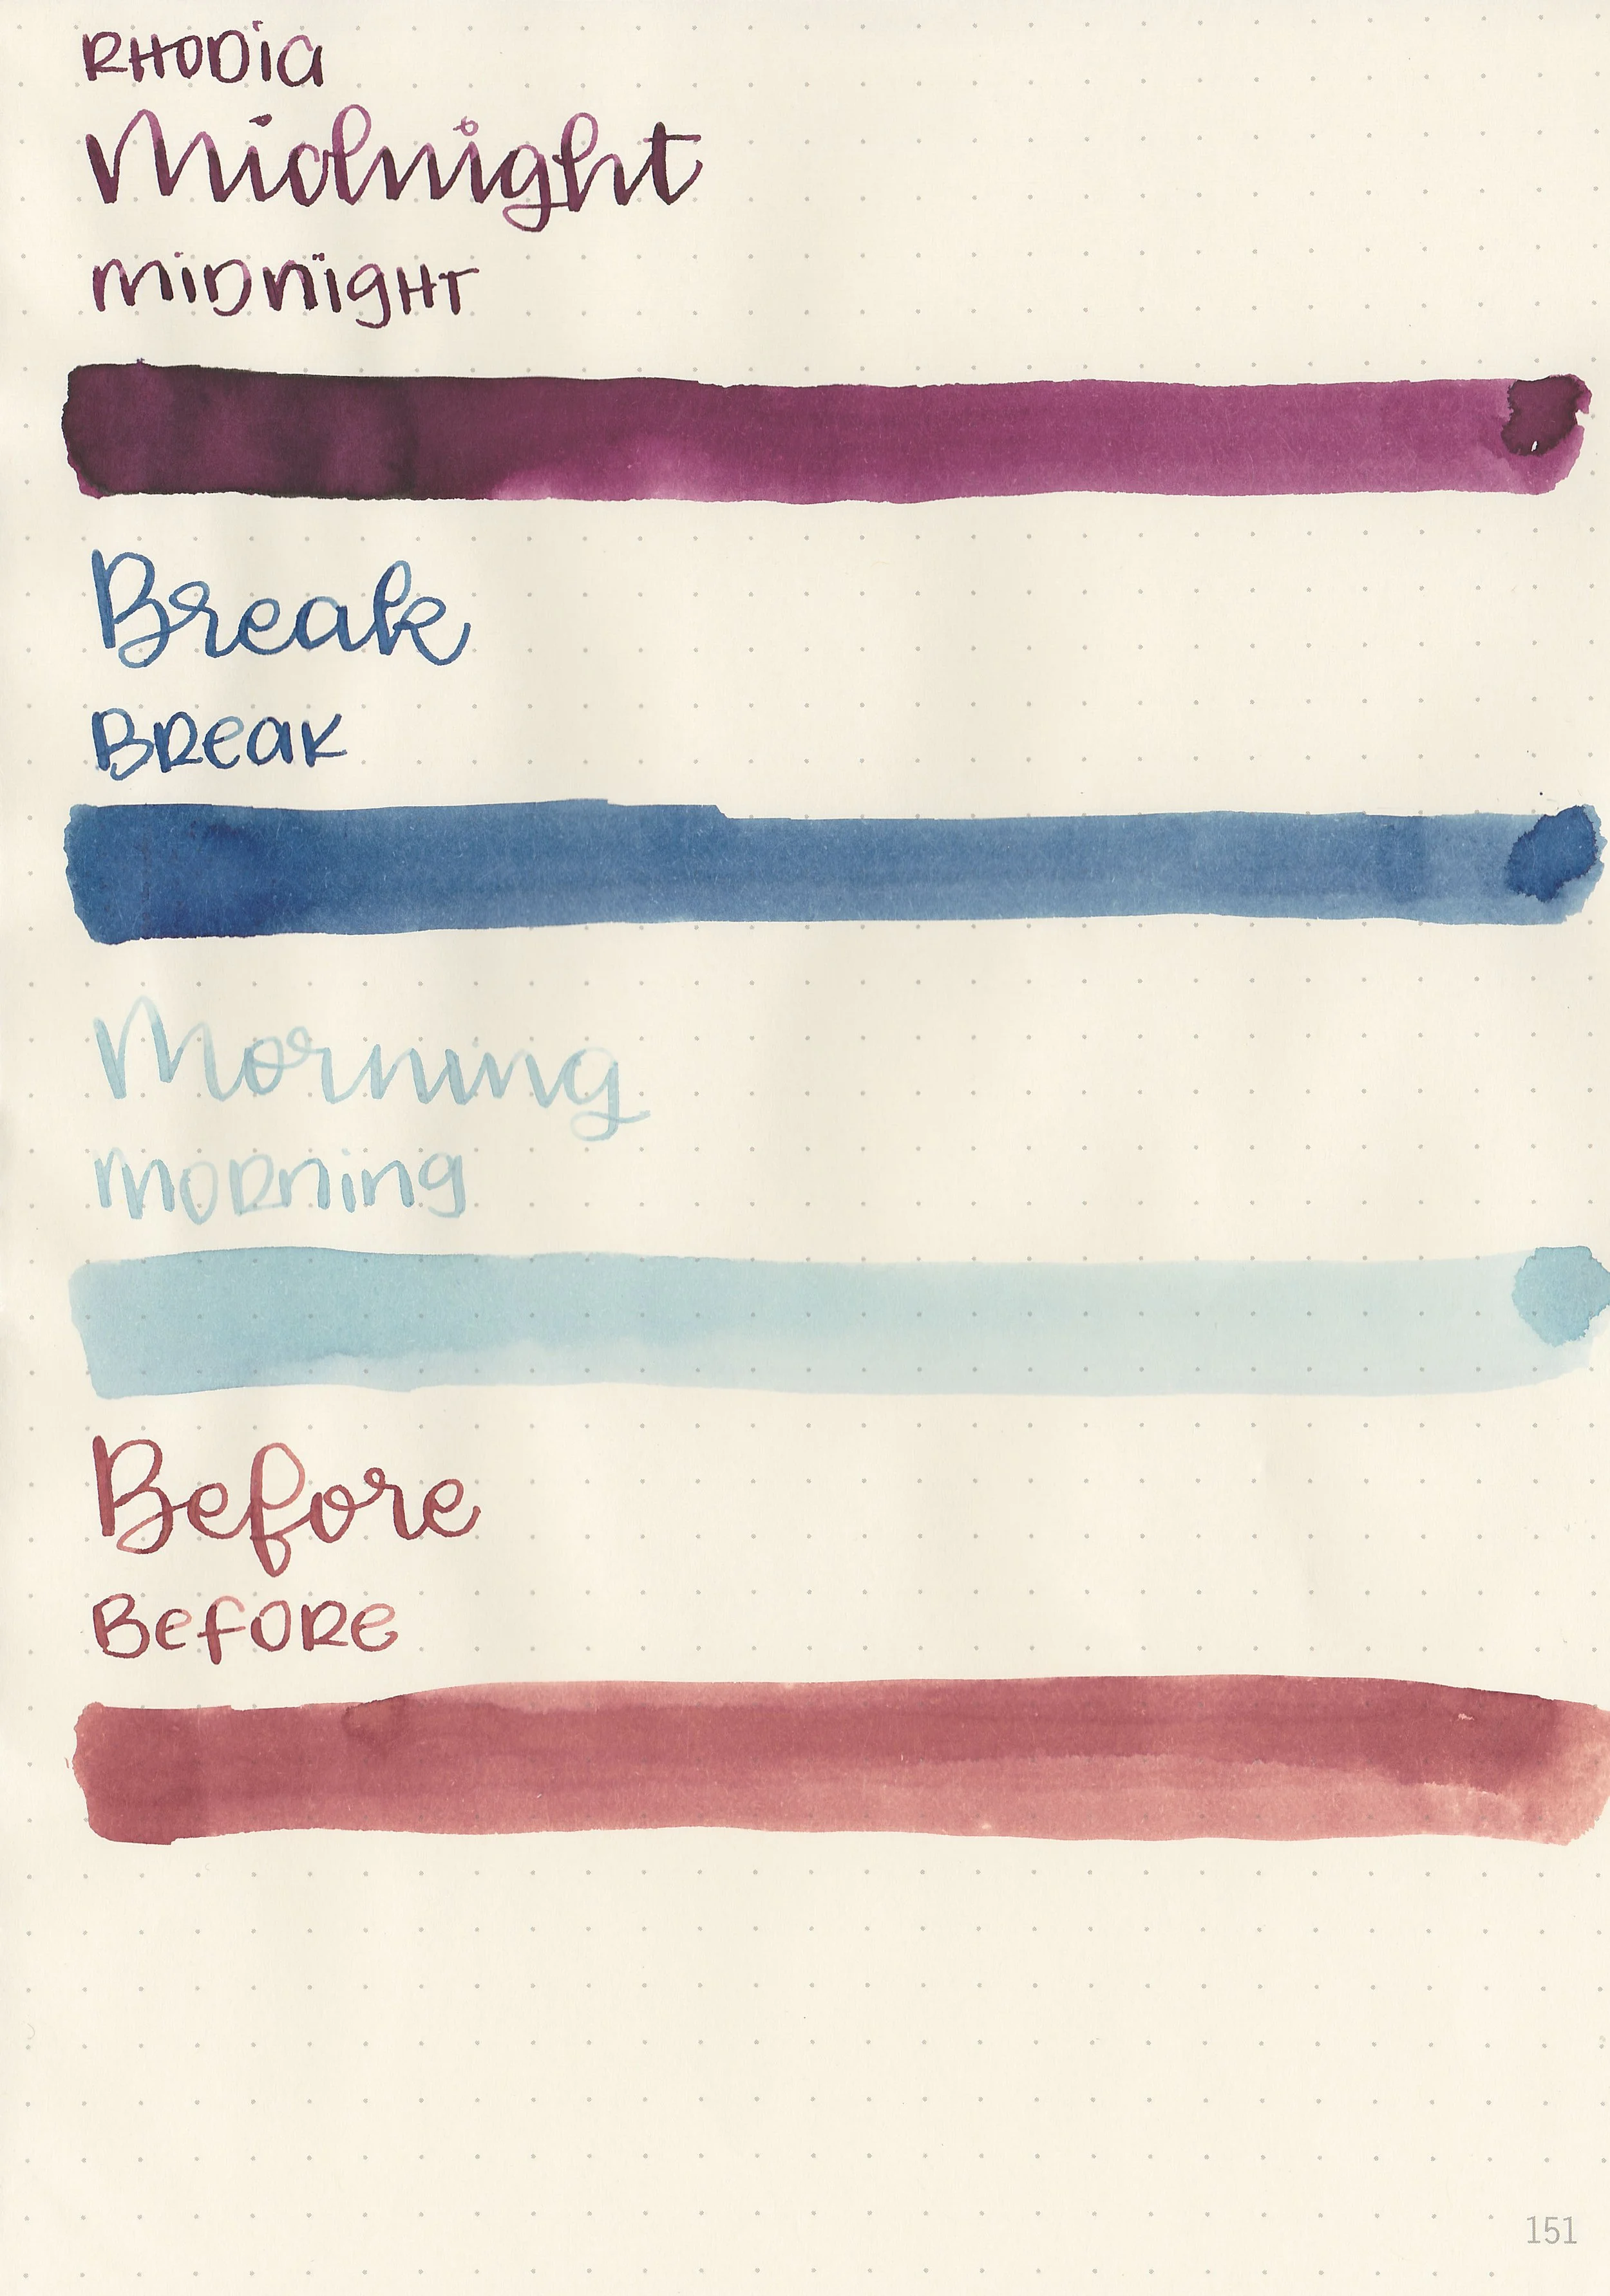 RHODIA
Midnight
MIDNIGHT
Break
BREAK
Morning
morning
Before
BEFORE
151